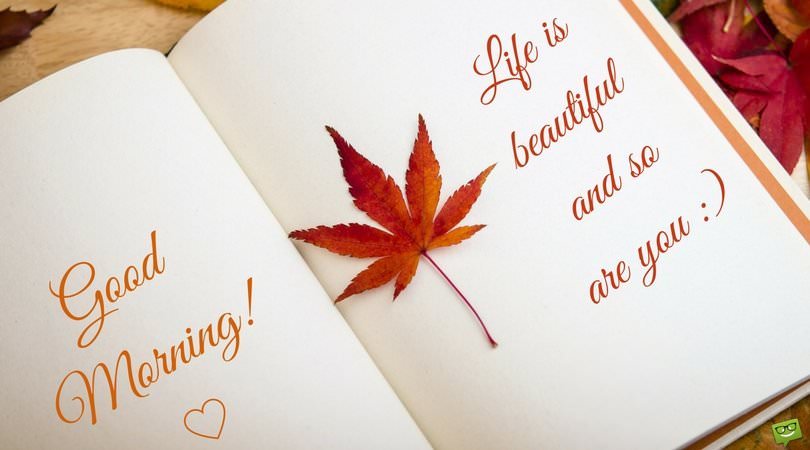 Good
Morning!
Life is
beautiful
and so
are you :)